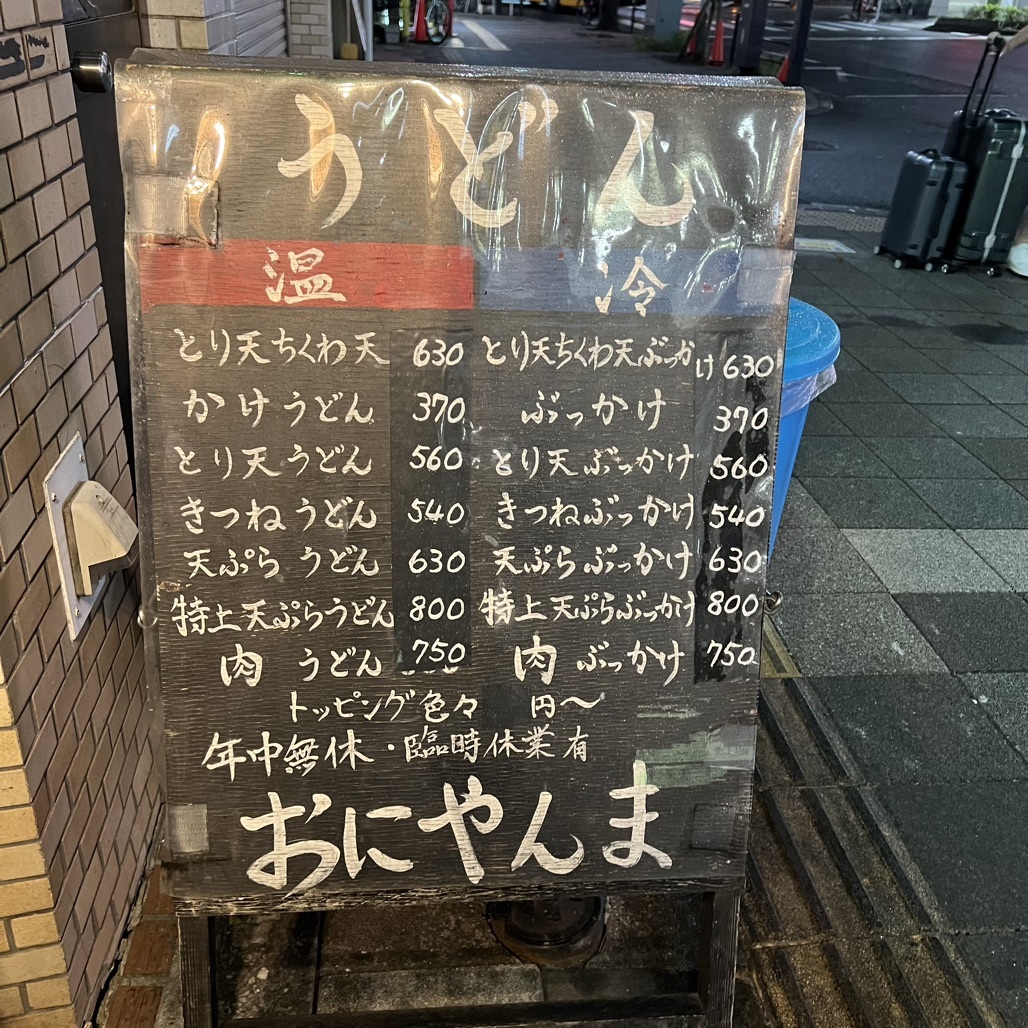 うどん
温 冷
とり天ちくわ天 630 とり天ちくわ天ぶっかけ 630
かけうどん 370 ぶっかけ 370
とり天うどん 560 とり天ぶっかけ 560
きつねうどん 540 きつねぶっかけ 540
天ぷらうどん 630 天ぷらぶっかけ 630
特上天ぷらうどん 800 特上天ぷらぶっかけ 800
肉うどん 750 肉ぶっかけ 750
トッピング色々 円〜
年中無休・臨時休業有
おにやんま